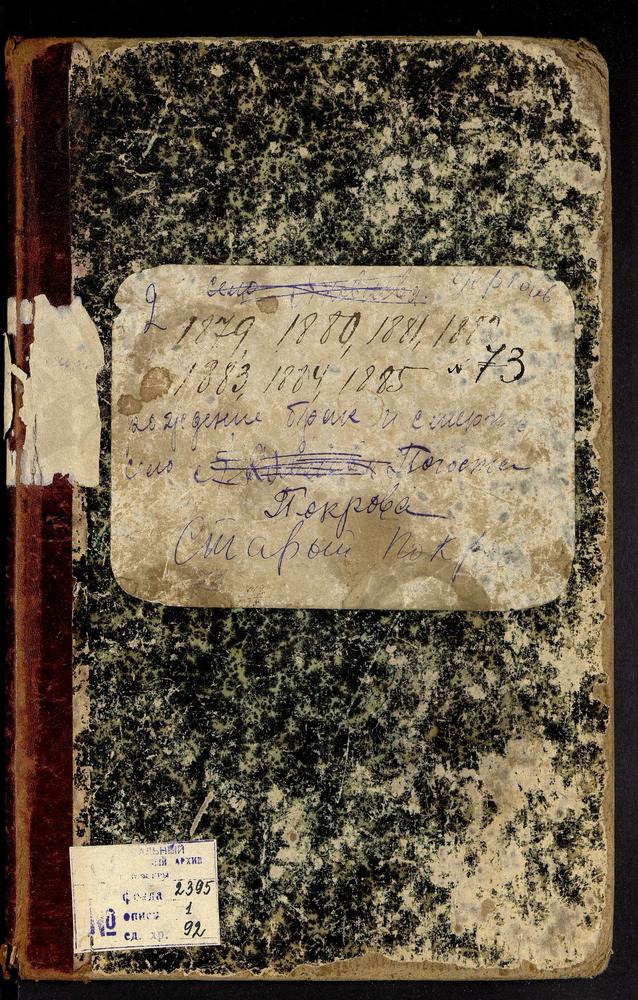 2 село
1879, 1880, 1881, 1882
1883, 1884, 1885 № 73
рождение брак и смерть
село Погоста
Покрова
Старый Покр
АЛЬНЫЙ
ЫЙ АРХИВ
фонда 2395
№ опись 1
ед. хр. 92